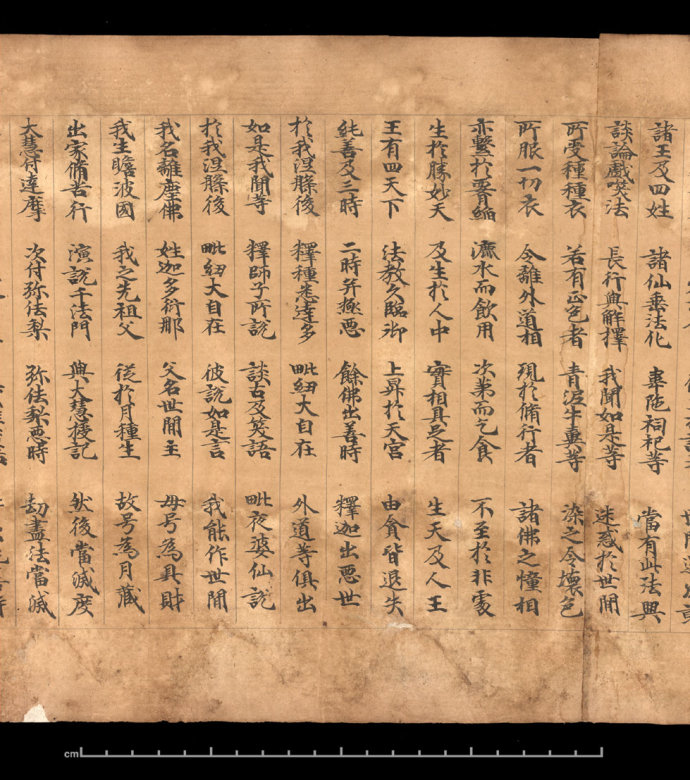 諸王及四姓 諸仙垂法化 韋陁祠祀等 當有此法興
談論戲笑法 長行與解釋 我聞如是等 迷惑於世間
所受種種衣 若有正色者 青泥牛糞等 染之令壞色
所服一切衣 令離外道相 現於脩行者 諸佛之憧相
亦繫於 漉水而飲用 次第而乞食 不至於非處
生於勝妙天 及生於人中 寶相具足者 生天及人王
王有四天下 法教久臨御 上昇於天宮 由貪皆退失
純善及三時 二時并極惡 餘佛出善時 釋迦出惡世
於我涅槃後 釋種悉達多 毗紐大自在 外道等俱出
如是我聞等 釋師子所說 談古及笑語 毗夜婆仙說
於我涅槃後 毗紐大自在 彼說如是言 我能作世間
我名離塵佛 姓迦多衍那 父名世間主 母号為具財
我生瞻波國 我之先祖父 從於月種生 故号為月藏
出家脩苦行 演說千法門 與大慧授記 然後當滅度
大慧付達摩 次付弥佉梨 弥佉梨惡時 劫盡法當滅
cm